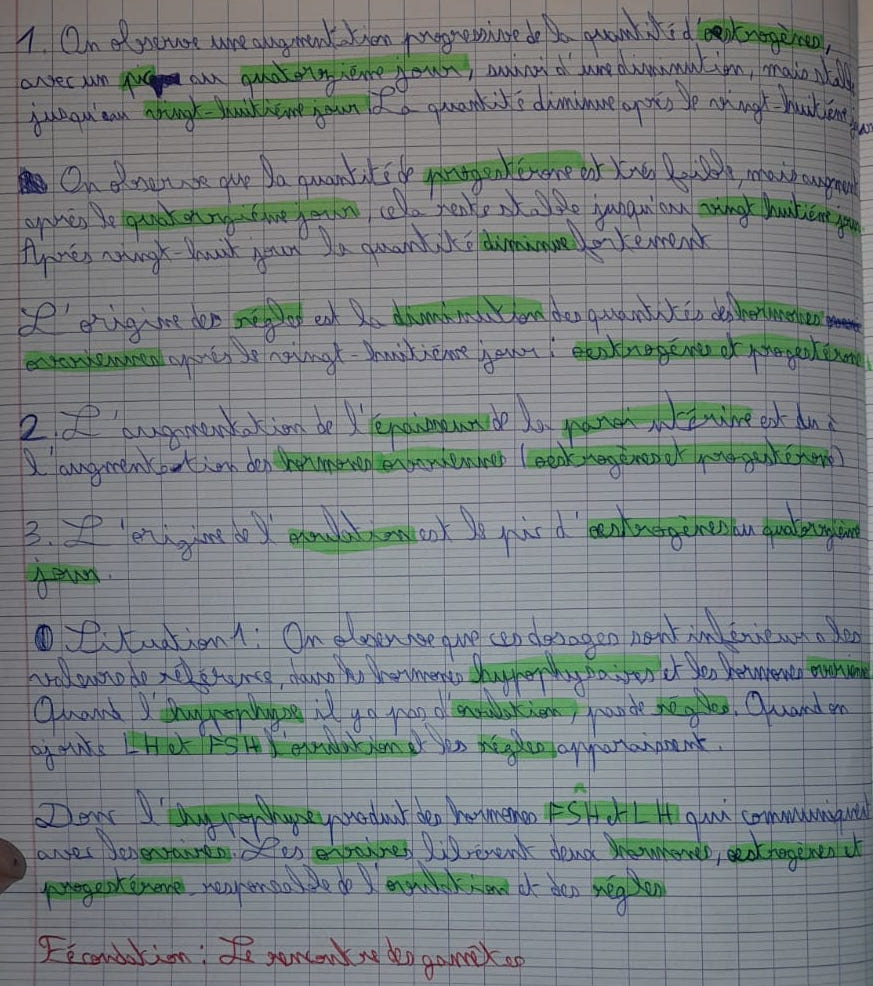 1. On observe une augmentation progressive de la quantité d'oestrogènes,
avec un pic au quatorzième jour, suivi d'une diminution, mais stable
jusqu'au vingt-huitième jour La quantité diminue après le vingt-huitième jour
On observe que la quantité de progestérone est très faible, mais augment
après le quatorzième jour, cela reste stable jusqu'au vingt huitième jour
Après vingt-huit jour la quantité diminue fortement
L'origine des règles est la diminution des quantités des hormones
ovariennes après le vingt-huitième jour : oestrogènes et progestérone
2. L'augmentation de l'épaisseur de la paroi utérine est du à
l'augmentation des hormones ovariennes (oestrogènes et progestérone)
3. L'origine de l'ovulation est le pic d'oestrogènes au quatorzième
jour.
Situation 1 : On observe que ces dosages sont inférieur a les
valeurs de référence, dans les hormones hypophysaires et les hormones
Quand l'hypophyse il y a pas d'ovulation, pas de règles. Quand on
ajoute LH et FSH l'ovulation et les règles apparaissent.
Donc l'hypophyse produit des hormones FSH et LH qui communiquent
avec les ovaires. Les ovaires libèrent deux hormones, oestrogènes et
progestérone responsable de l'ovulation et des règles
Fécondation : Le rencontre des gamètes